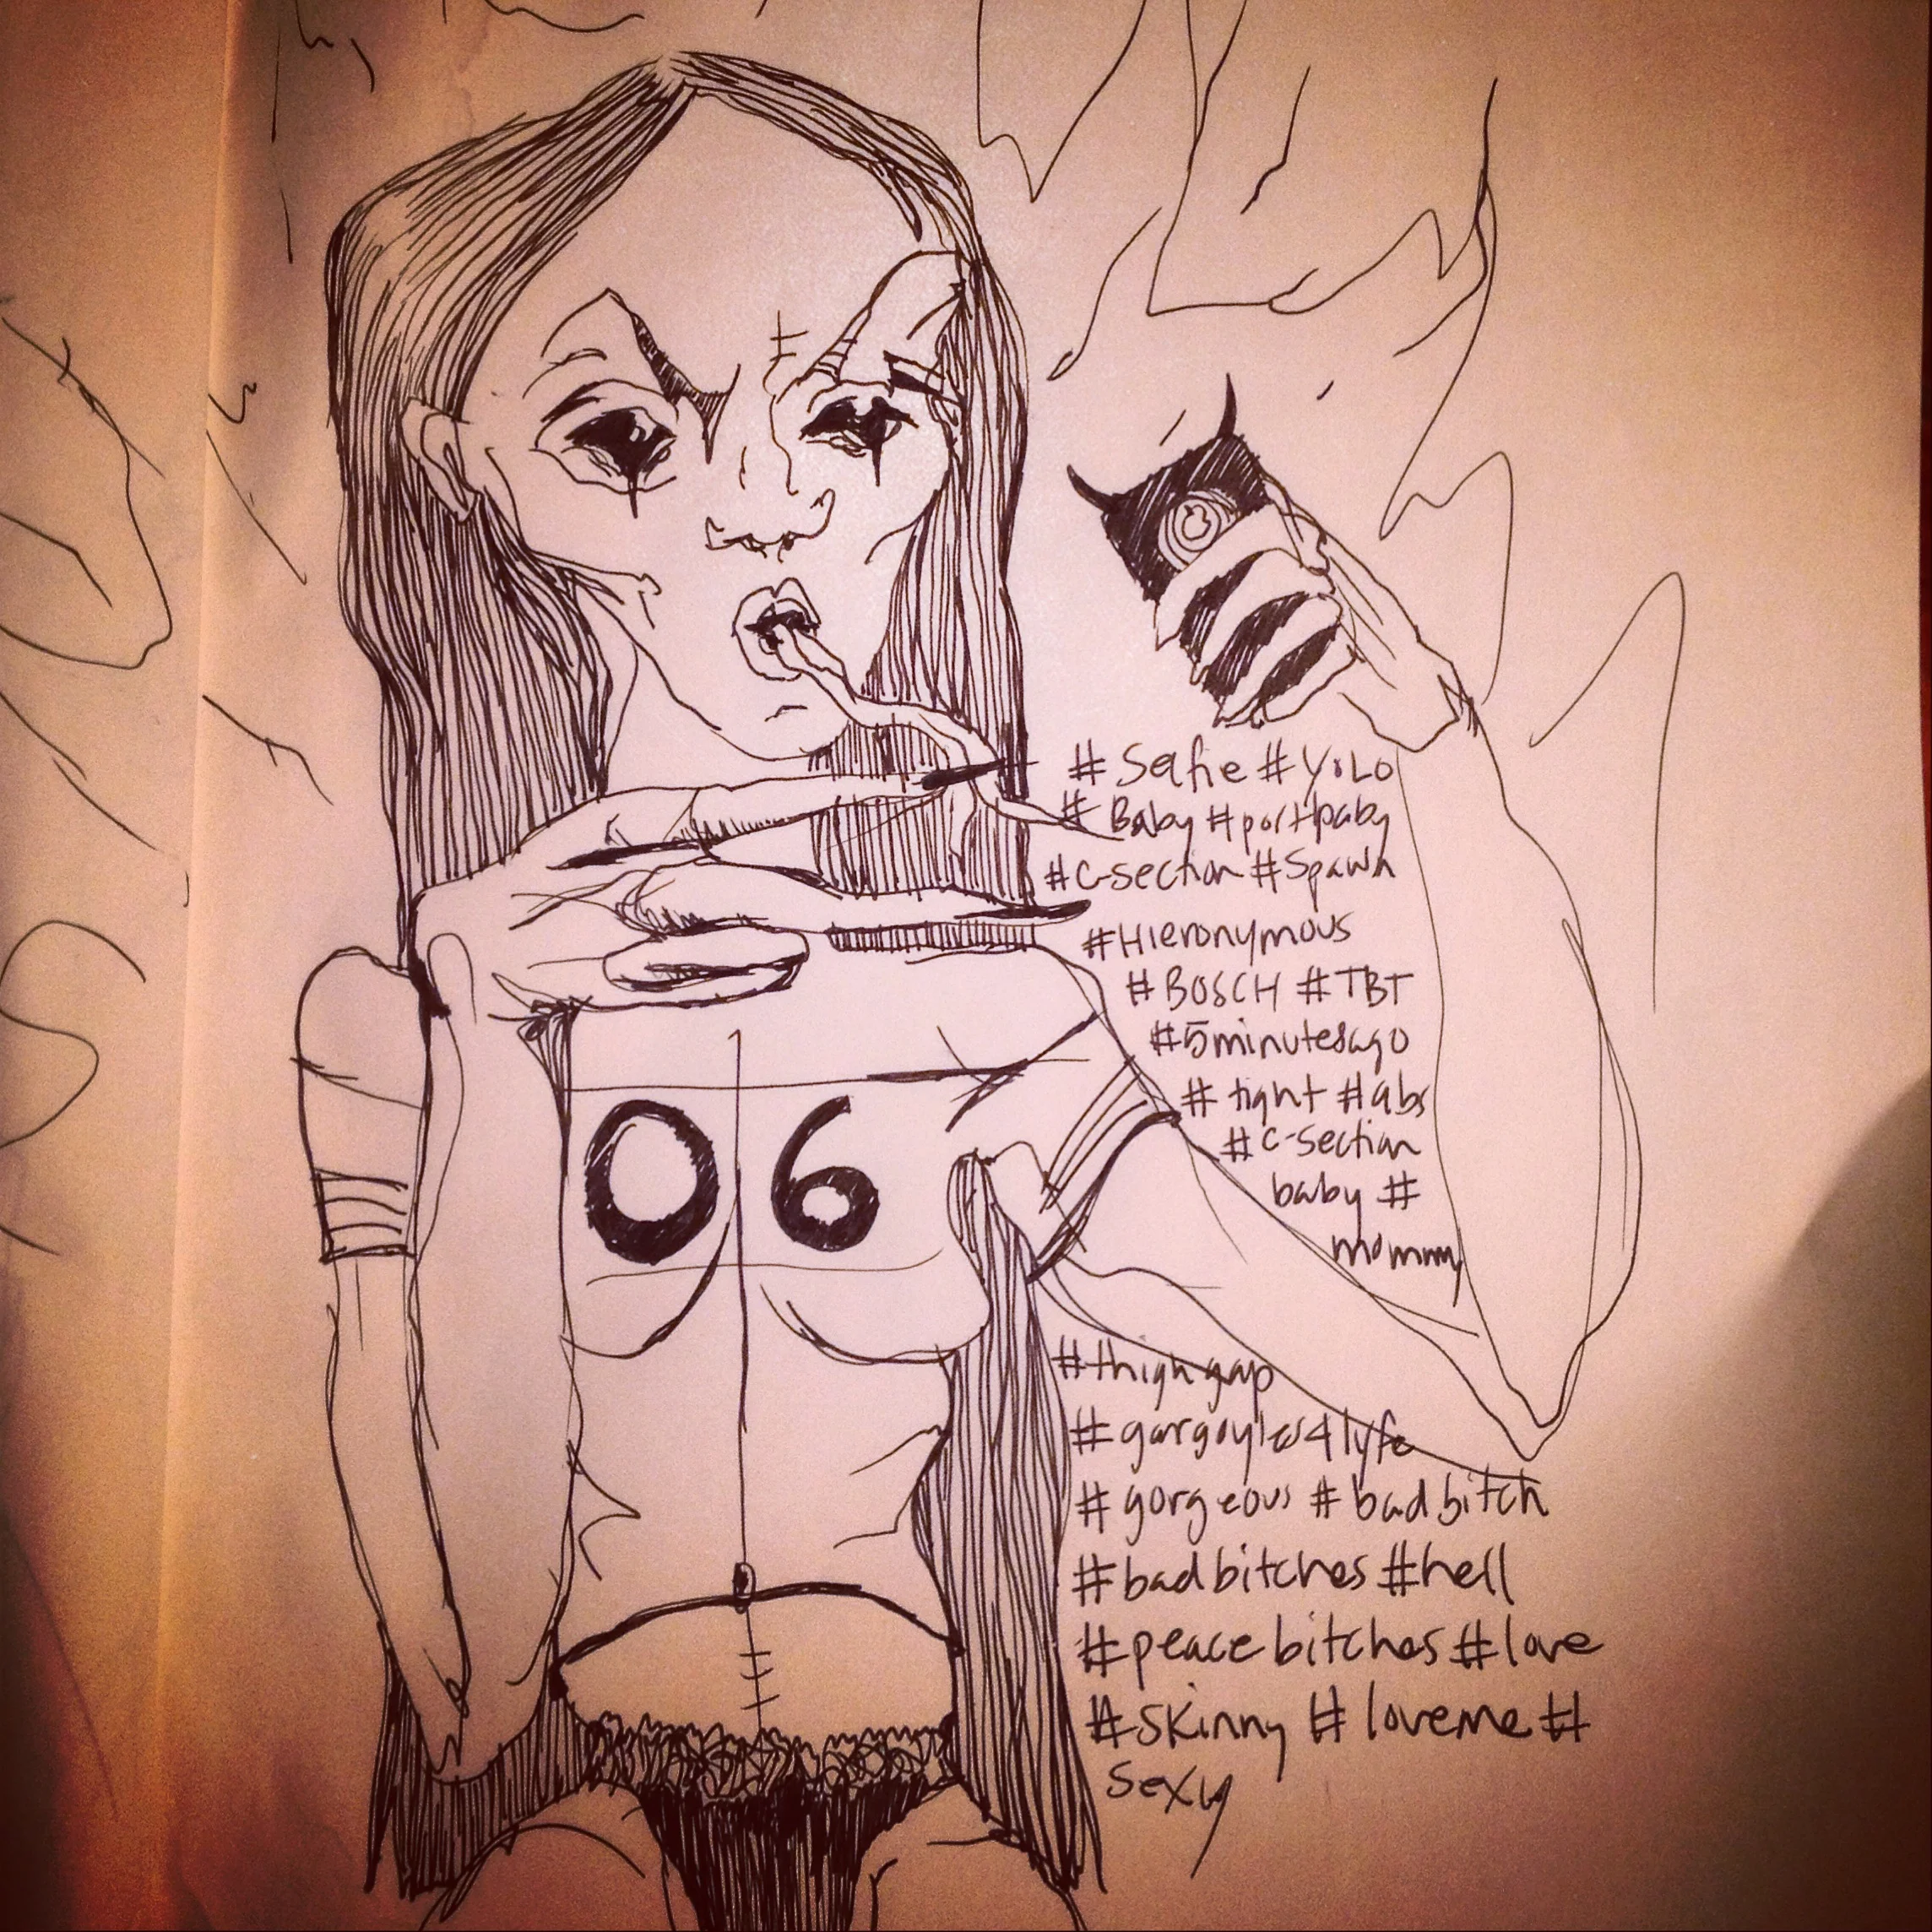 06
#Selfie #YOLO
# Baby #portbaby
#C-section #Spawn
#HIERONYMOUS
#BOSCH #TBT
#5minutesago
# tight #abs
# C-section
baby #
mommy
#thighgap
#gargoyles4lyfe
#gorgeous #badbitch
#badbitches #hell
#peacebitches #love
#skinny #loveme #
sexy